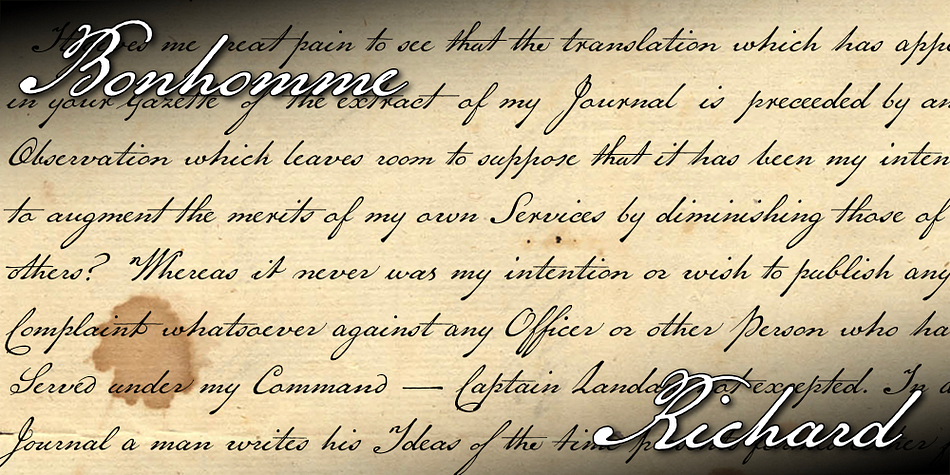 Bonhomme
me great pain to see that the translation which has
in your Gazette of the extract of my Journal is preceeded by
Observation which leaves room to suppose that it has been my inten
to augment the merits of my own Services by diminishing those of
others? Whereas it never was my intention or wish to publish any
Complaint whatsoever against any Officer or other Person who
Served under my Command — Captain excepted. In
Journal a man writes his Ideas of the time
Richard